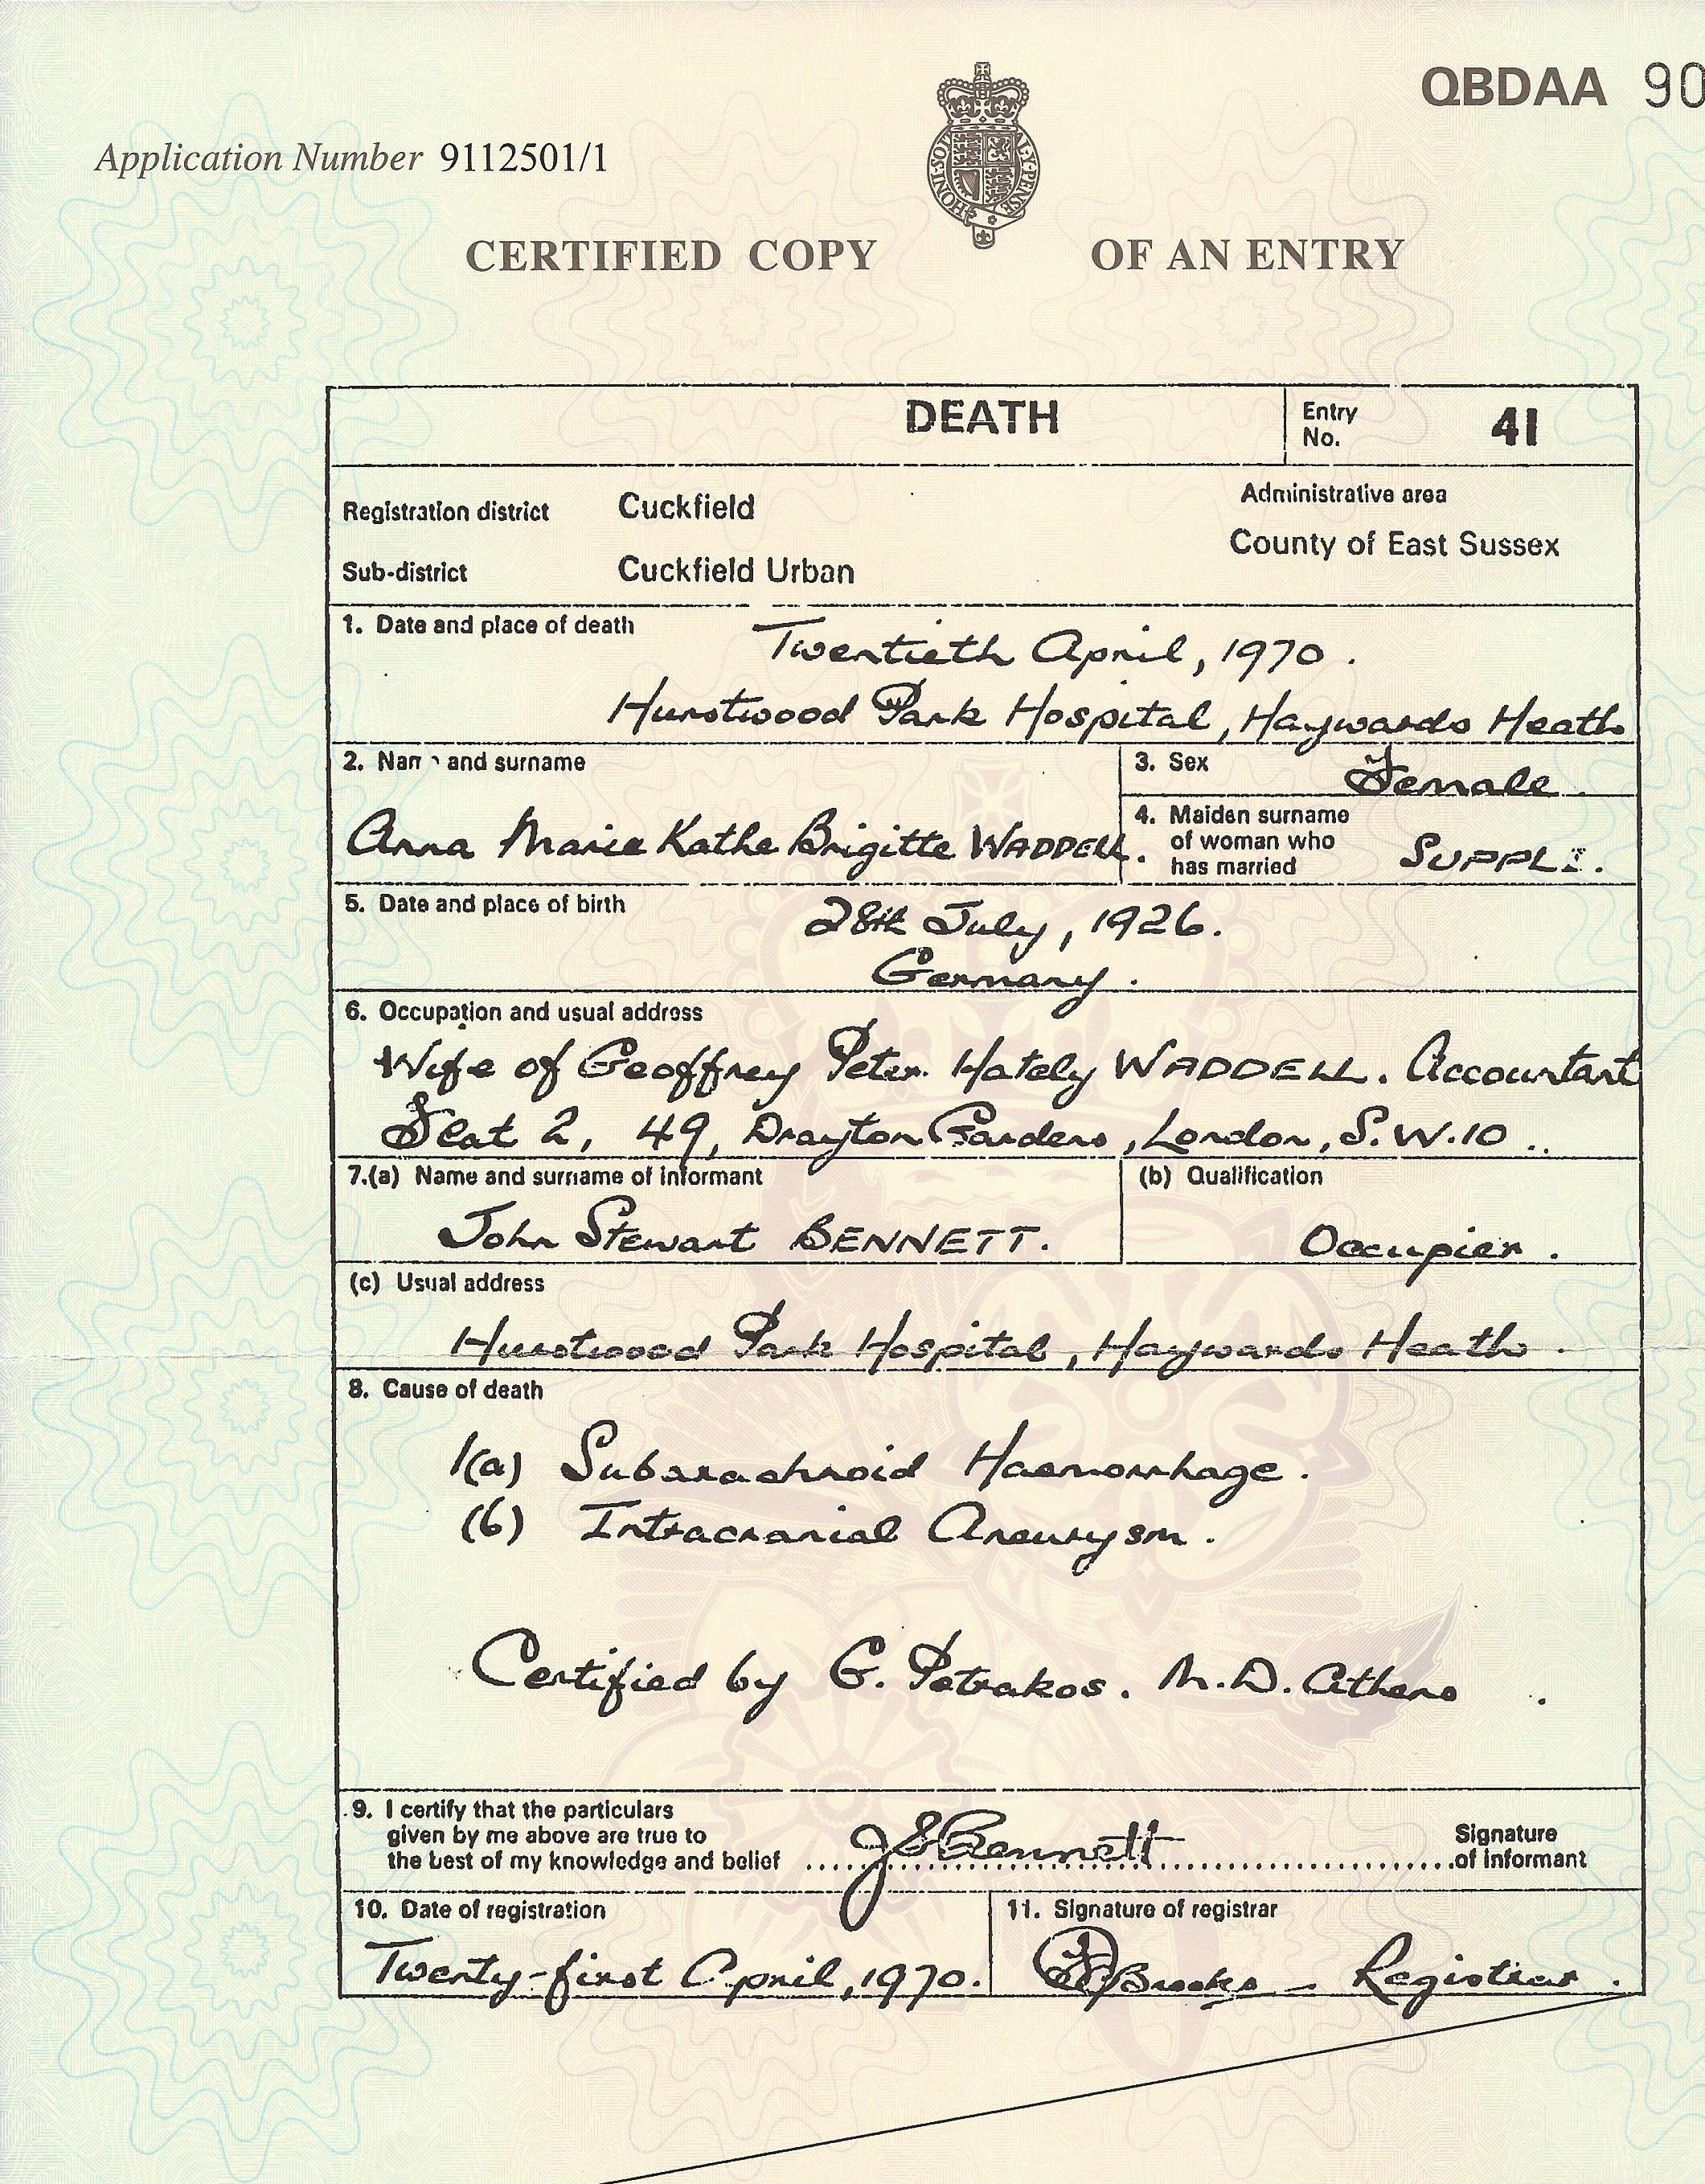 QBDAA 90
Application Number 9112501/1
HONI·SOI AL·Y·PENSE
CERTIFIED COPY OF AN ENTRY
DEATH
Entry No. 41
Registration district Cuckfield
Administrative area
County of East Sussex
Sub-district Cuckfield Urban
1. Date and place of death
Twentieth April, 1970.
Hurstwood Park Hospital, Haywards Heath
2. Nam and surname
Anna Marie Kathe Brigitte WADDELL.
3. Sex
Female.
4. Maiden surname
of woman who
has married
SUPPLI.
5. Date and place of birth
28th July, 1926.
Germany.
6. Occupation and usual address
Wife of Geoffrey Peter Hately WADDELL. Accountant
Flat 2, 49, Drayton Gardens, London, S.W.10..
7.(a) Name and surname of informant
John Stewart BENNETT.
(b) Qualification
Occupier.
(c) Usual address
Hurstwood Park Hospital, Haywards Heath.
8. Cause of death
1(a) Subarachnoid Haemorrhage.
(b) Intracranial Aneurysm.
Certified by G. Petrakos. M.D. Athens.
9. I certify that the particulars
given by me above are true to
the best of my knowledge and belief
JSBennett
Signature
of informant
10. Date of registration
Twenty-first April, 1970.
11. Signature of registrar
Brooks – Registrar.